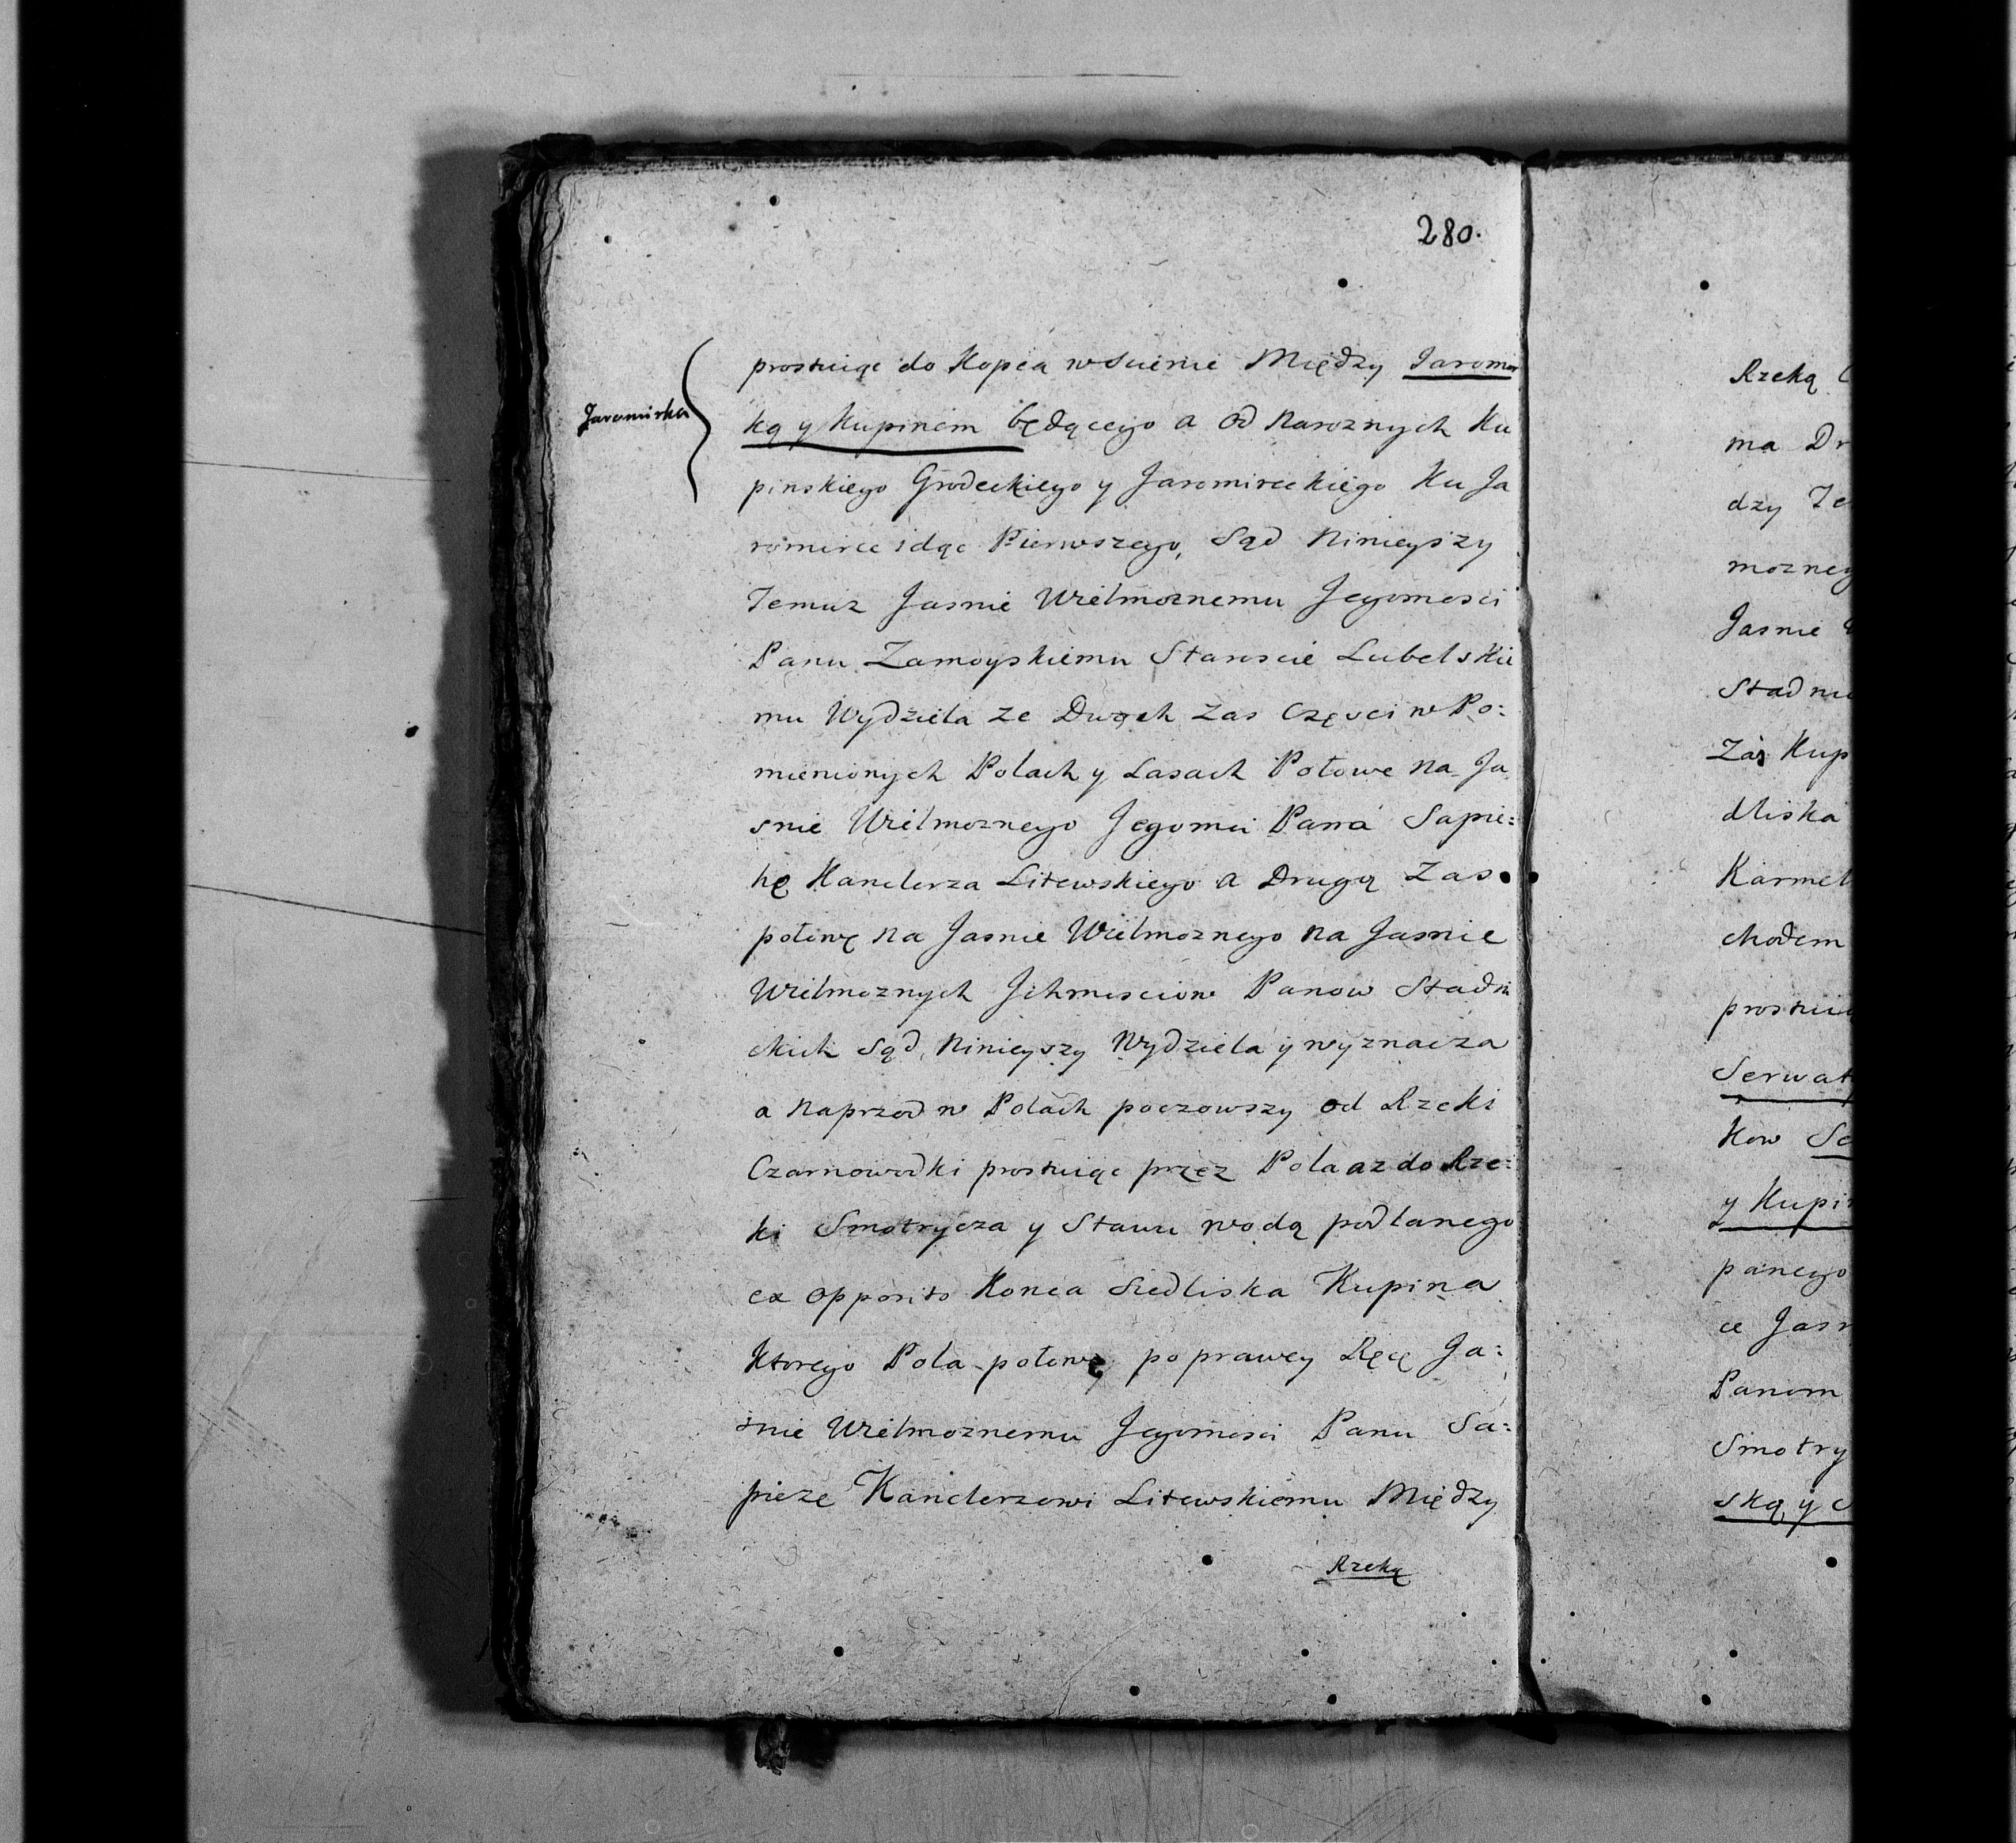 280.
prostuiąc do Kopca w Scienie Między Jaromir
Jaromirka
ką y Kupinem będącego a od Naroznych Ku
pinskiego Grodeckiego y Jaromireckiego Ku Ja
romirce idąc Pierwszego, Sąd Ninieyszy
Temuz Jasnie Wielmoznemu Jegomosci
Panu Zamoyskiemu Staroscie Lubelskie
mu Wydziela ze Dwoch Zas Częsci w Po:
mienionych Polach y Lasach Połowe na Ja
snie Wielmoznego Jegomci Pana Sapie:
hę Kanclerza Litewskiego a Drugą Zas
połowę na Jasnie Wielmoznego na Jasnie
Wielmoznych Ichmosciow Panow Stadni
ckich Sąd Ninieyszy Wydziela y wyznacza
a Naprzod w Polach poczowszy od Rzeki
Czarnowodki prostuiąc przez Pola az do Rze:
ki Smotrycza y Stawu wodą podlanego
ex opposito Konca Siedliska Kupina
Ktorego Pola połowę po prawey Ręcę Ja:
snie Wielmoznemu Jegomosci Panu Sa:
pieze Kanclerzowi Litewskiemu Między
Rzeką
Rzeką
ma Dr
dzy
mozneg
Jasnie
Stadni
Zas Kup
dliska
Karmel
chodem
prostuią
Serwat
kow Se
y Kupin
panego
ce Jasn
Panom
Smotry
ską y